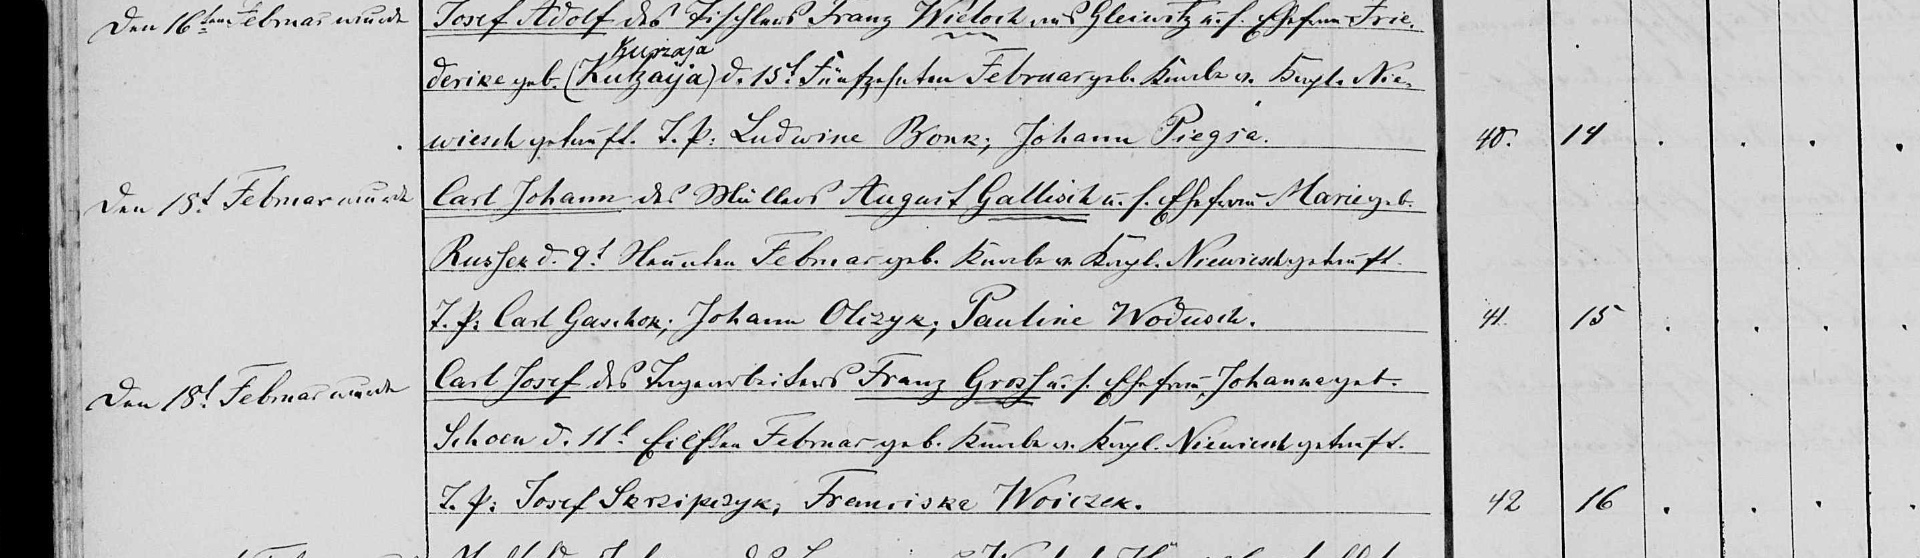 Den 16ten Februar wurde Josef Adolf des Tischlers Franz Wieloch aus Gleiwitz u. s. Ehefrau Frie-
Kurzaja
derike geb. (Kutzaija) d. 15t Fünfzehnten Februar geb. Knabe v. Kapl. Nie-
wiesch getauft. T. P: Ludwine Bonk; Johann Piegsa. 40. 14 . . . .
Den 18t Februar wurde Carl Johann des Müllers August Gallisch u. s. Ehefrau Marie geb.
Russek d. 9t Neunten Februar geb. Knabe v. Kapl. Niewiesch getauft.
T. P: Carl Gaschok; Johann Olczyk; Pauline Wodusch. 41. 15 . . . .
Den 18t Februar wurde Carl Josef des Franz Grosz u. s. Ehefrau Johanna geb.
Schoen d. 11t Eilften Februar geb. Knabe v. Kapl. Niewiesch getauft.
T. P: Josef Skrzipczyk; Franciska Woiczek. 42 16 . . . .